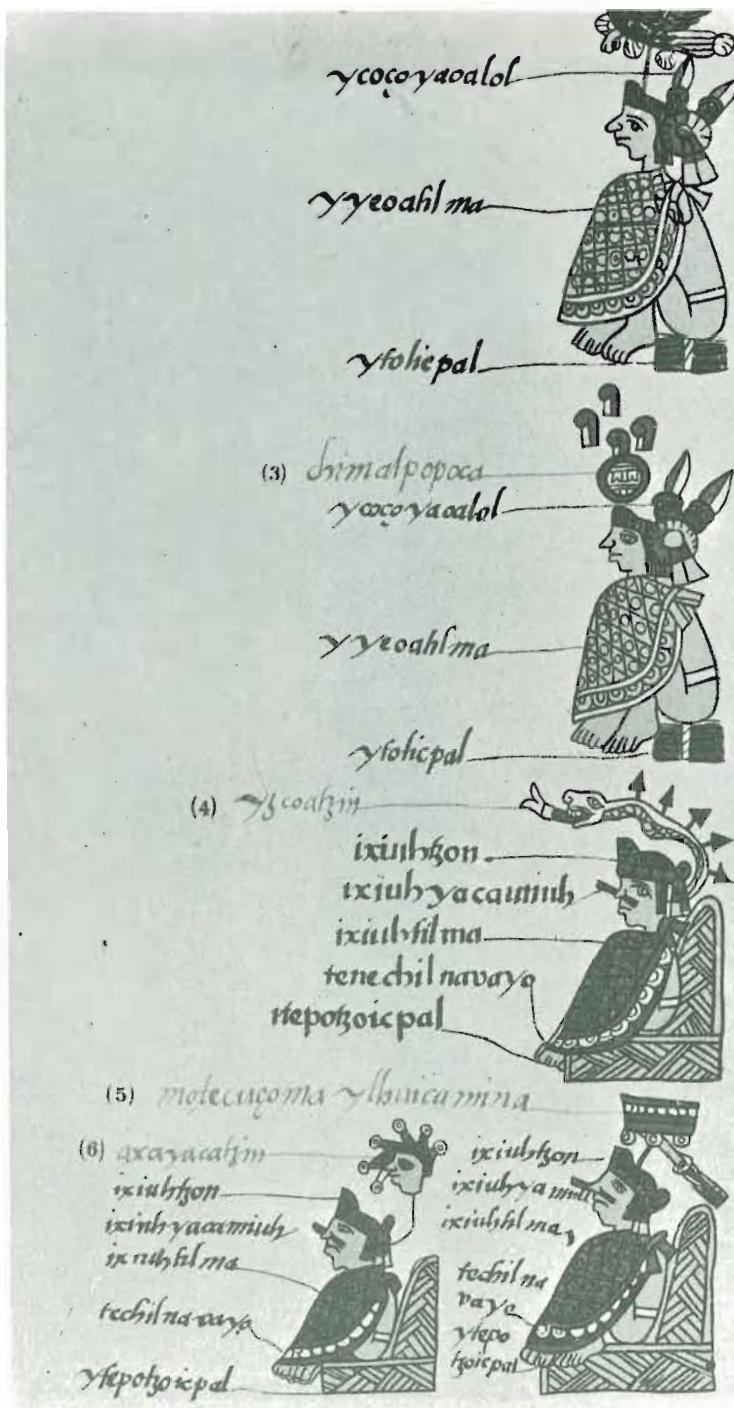 ycoçoyaoalol
yyeoahlma
ytolicpal
(3) chimalpopoca
ycoçoyaoalol
yyeoahlma
ytolicpal
(4) yzcoatzin
ixiuhtzon
ixiuhyacamiuh
ixiuhtilma
tenechilnavayo
ytepotzoicpal
(5) motecuçoma ylhuicamina
(6) axayacatzin
ixiuhtzon
ixiuhyacamiuh
ixiuhtilma
techilnavayo
ytepotzoicpal
ixiuhtzon
ixiuhtilma
techilna
vayo
ytepo
tzoicpal